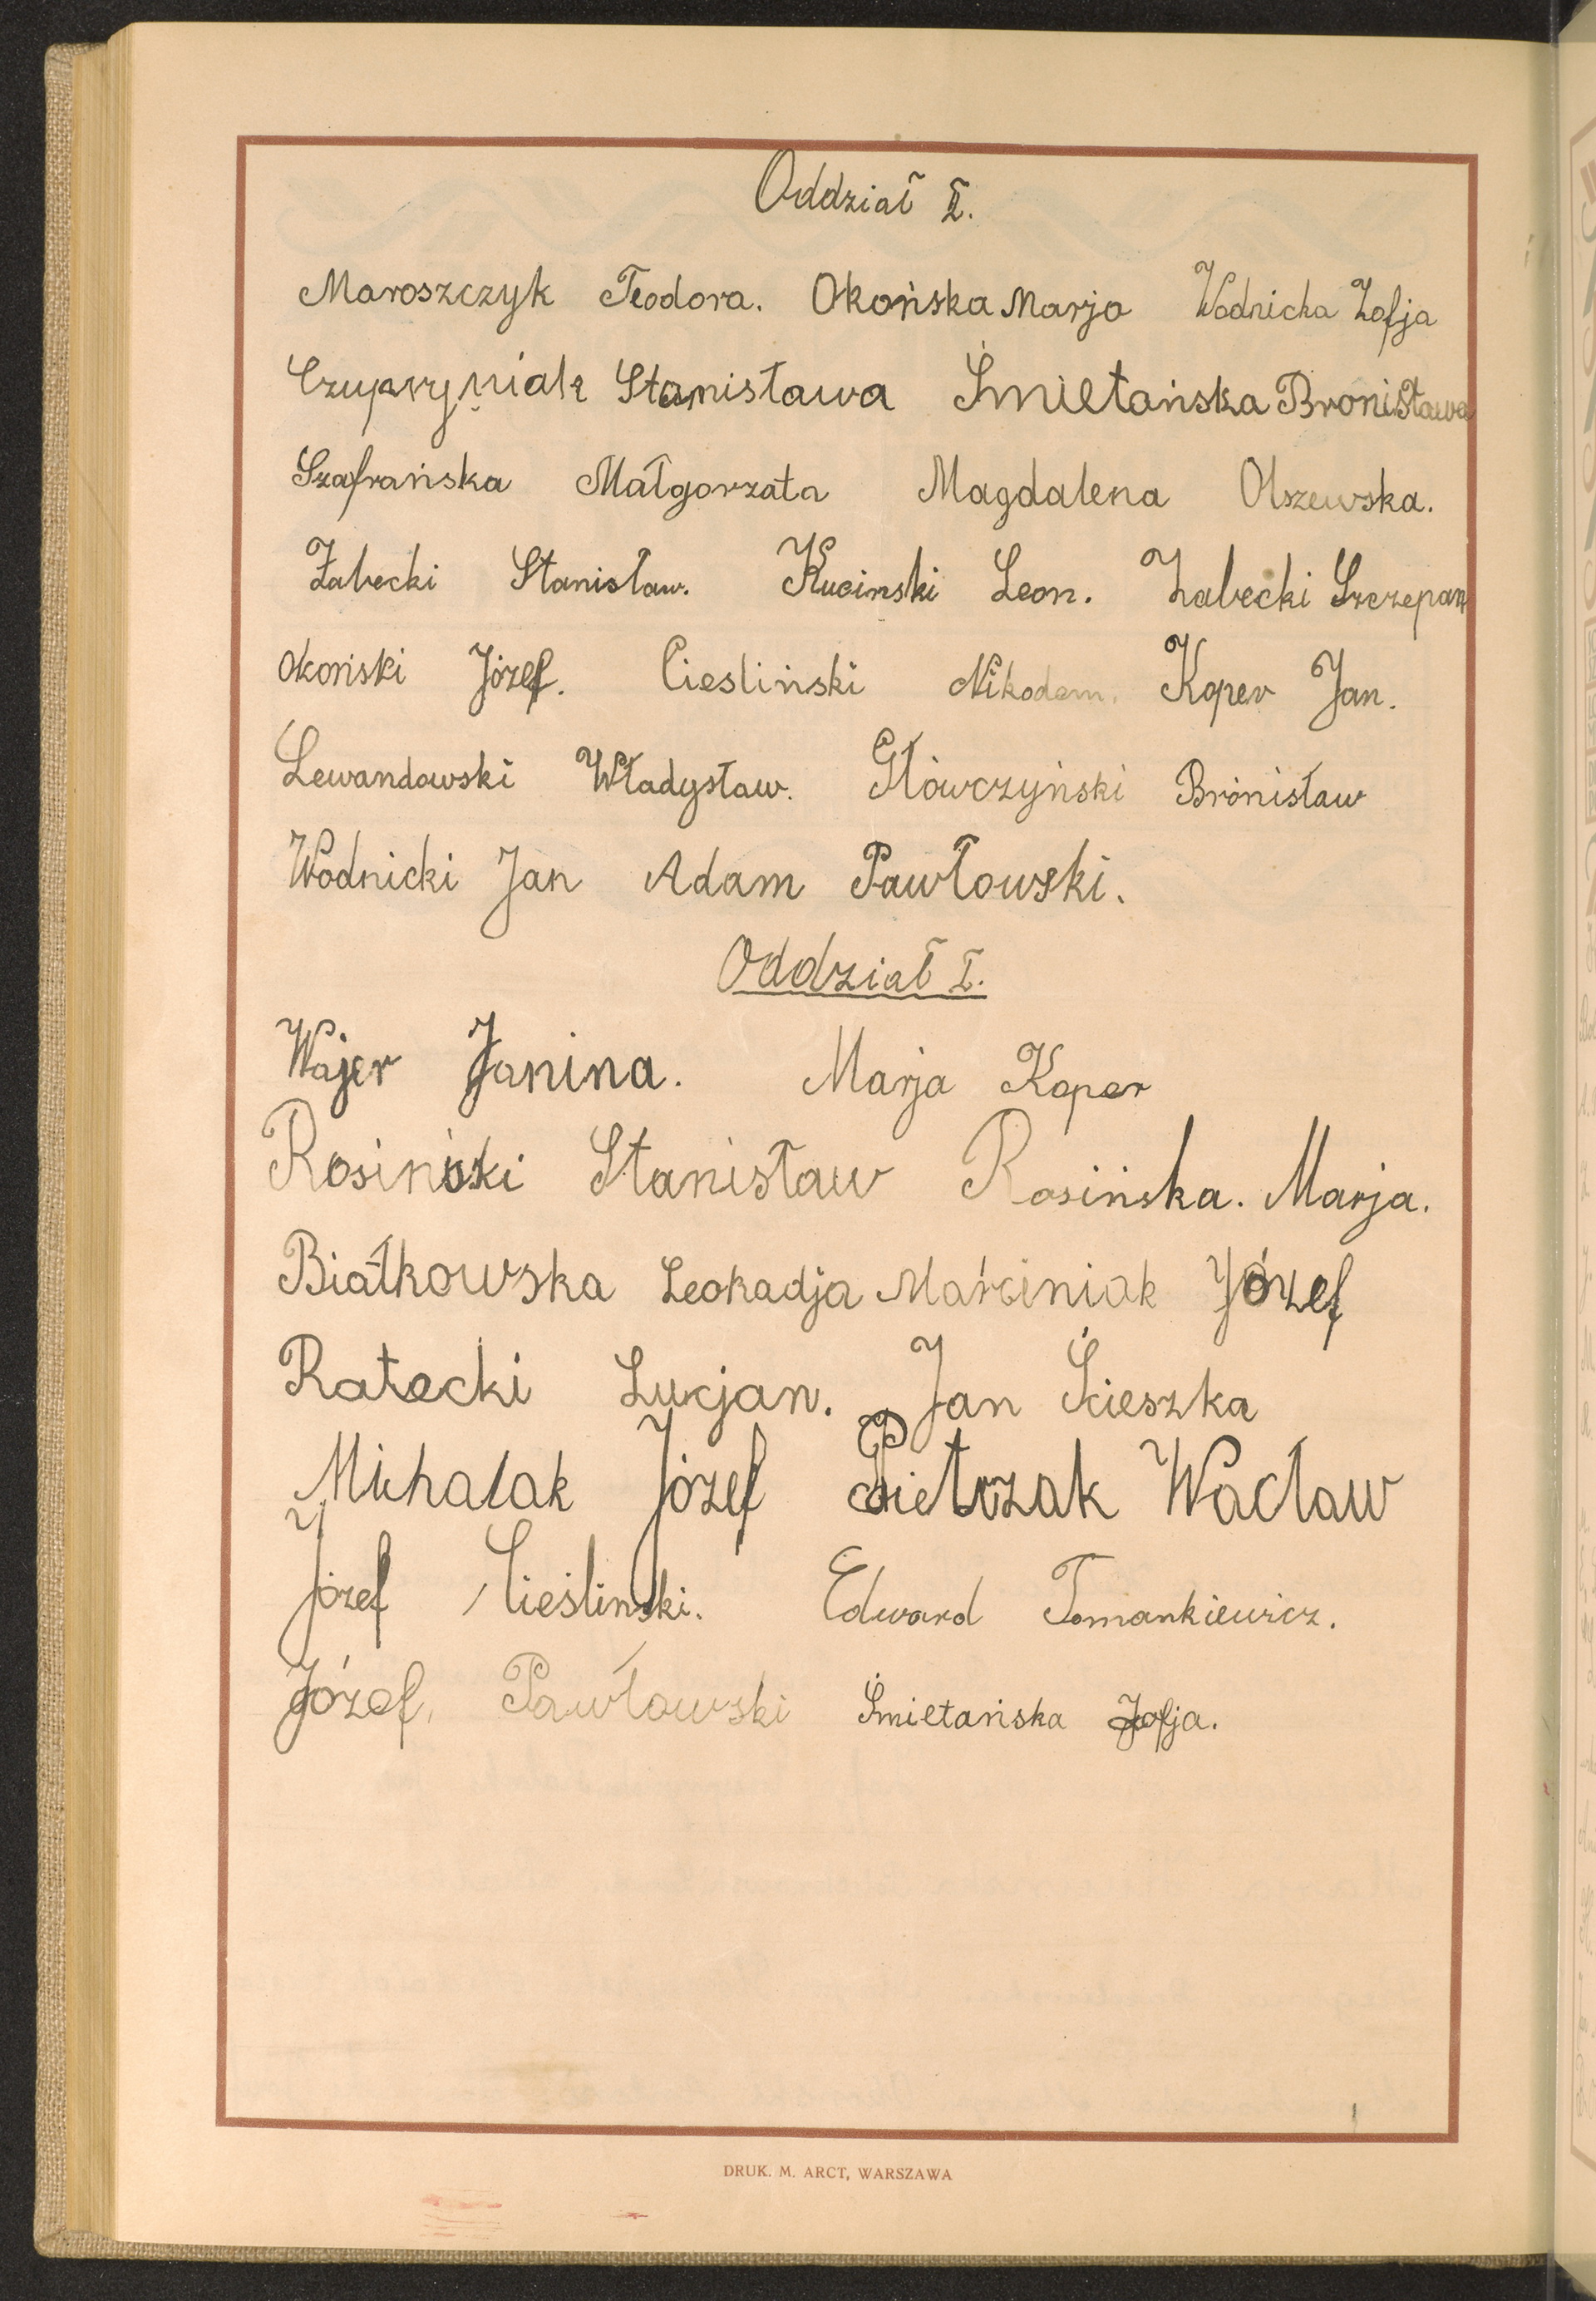 Oddział II.
Maroszczyk Teodora. Okońska Marja Wodnicka Zofja
Czupryniak Stanisława Śmietańska Bronisława
Szafrańska Małgorzata Magdalena Olszewska.
Żabecki Stanisław. Kucinski Leon. Żabecki Szczepan
Okoński Józef. Ciesliński Nikodem. Koper Jan.
Lewandowski Władysław. Główczyński Bronisław
Wodnicki Jan Adam Pawłowski.
Oddział I.
Wajer Janina. Marja Koper
Rosiński Stanisław Rosińska. Marja.
Białkowska Leokadja Marciniak Józef
Ratecki Lucjan. Jan Ścieszka
Michalak Józef Pietrzak Wacław
Józef Cieślinski. Edward Tomankiewicz.
Józef. Pawłowski Śmietańska Zofja.
DRUK. M. ARCT, WARSZAWA